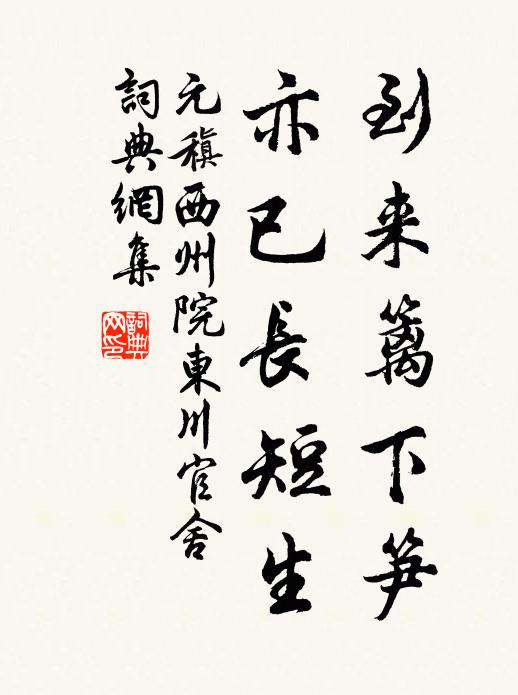 到来篱下笋
亦已長短生
元稹西州院東川官舍
詞典網集
詞典網印